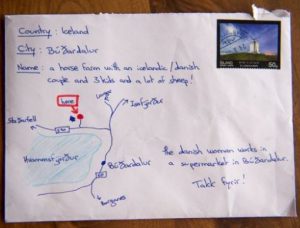 Country : Iceland
City : Búðardalur
Name : a horse farm with an icelandic/danish
couple and 3 kids and a lot of sheep!
ISLAND
50g
here
Ísafjörður
Hvammsfjörður
Búðardalur
Borgarnes
the danish woman works in
a supermarket in Búðardalur.
Takk fyrir!